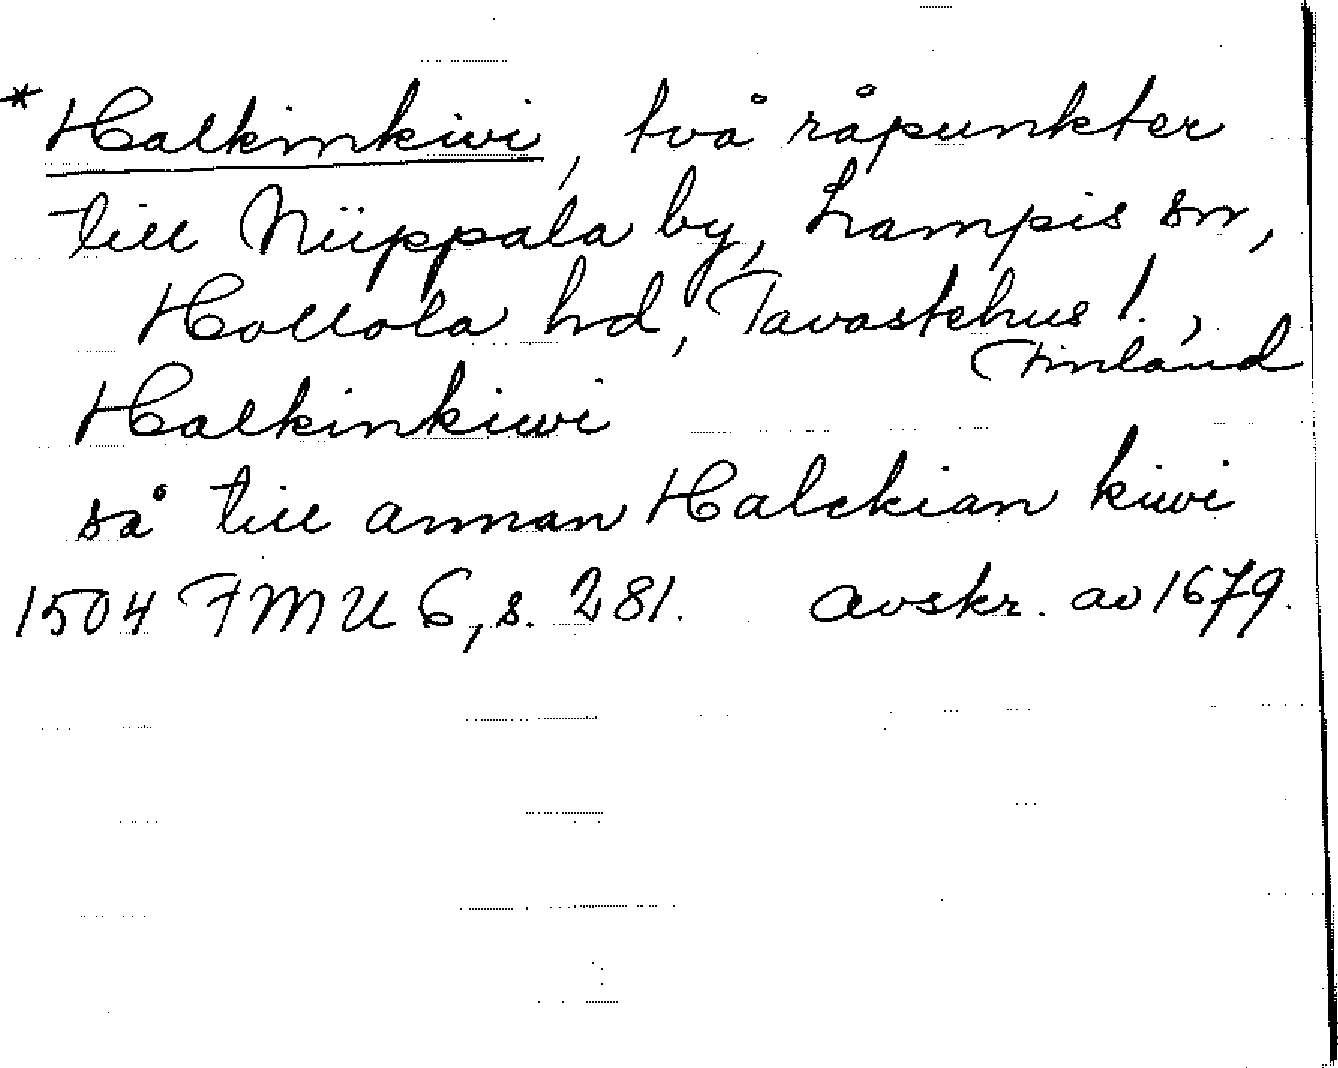 * Halkinkiwi, två råpunkter
till Niippala by, Lampis sn,
Hollola hd, Tavastehus l.,
Finland
Halkinkiwi
så till annan Halckian kiwi
1504 FMU 6, s. 281. avskr. av 1679.